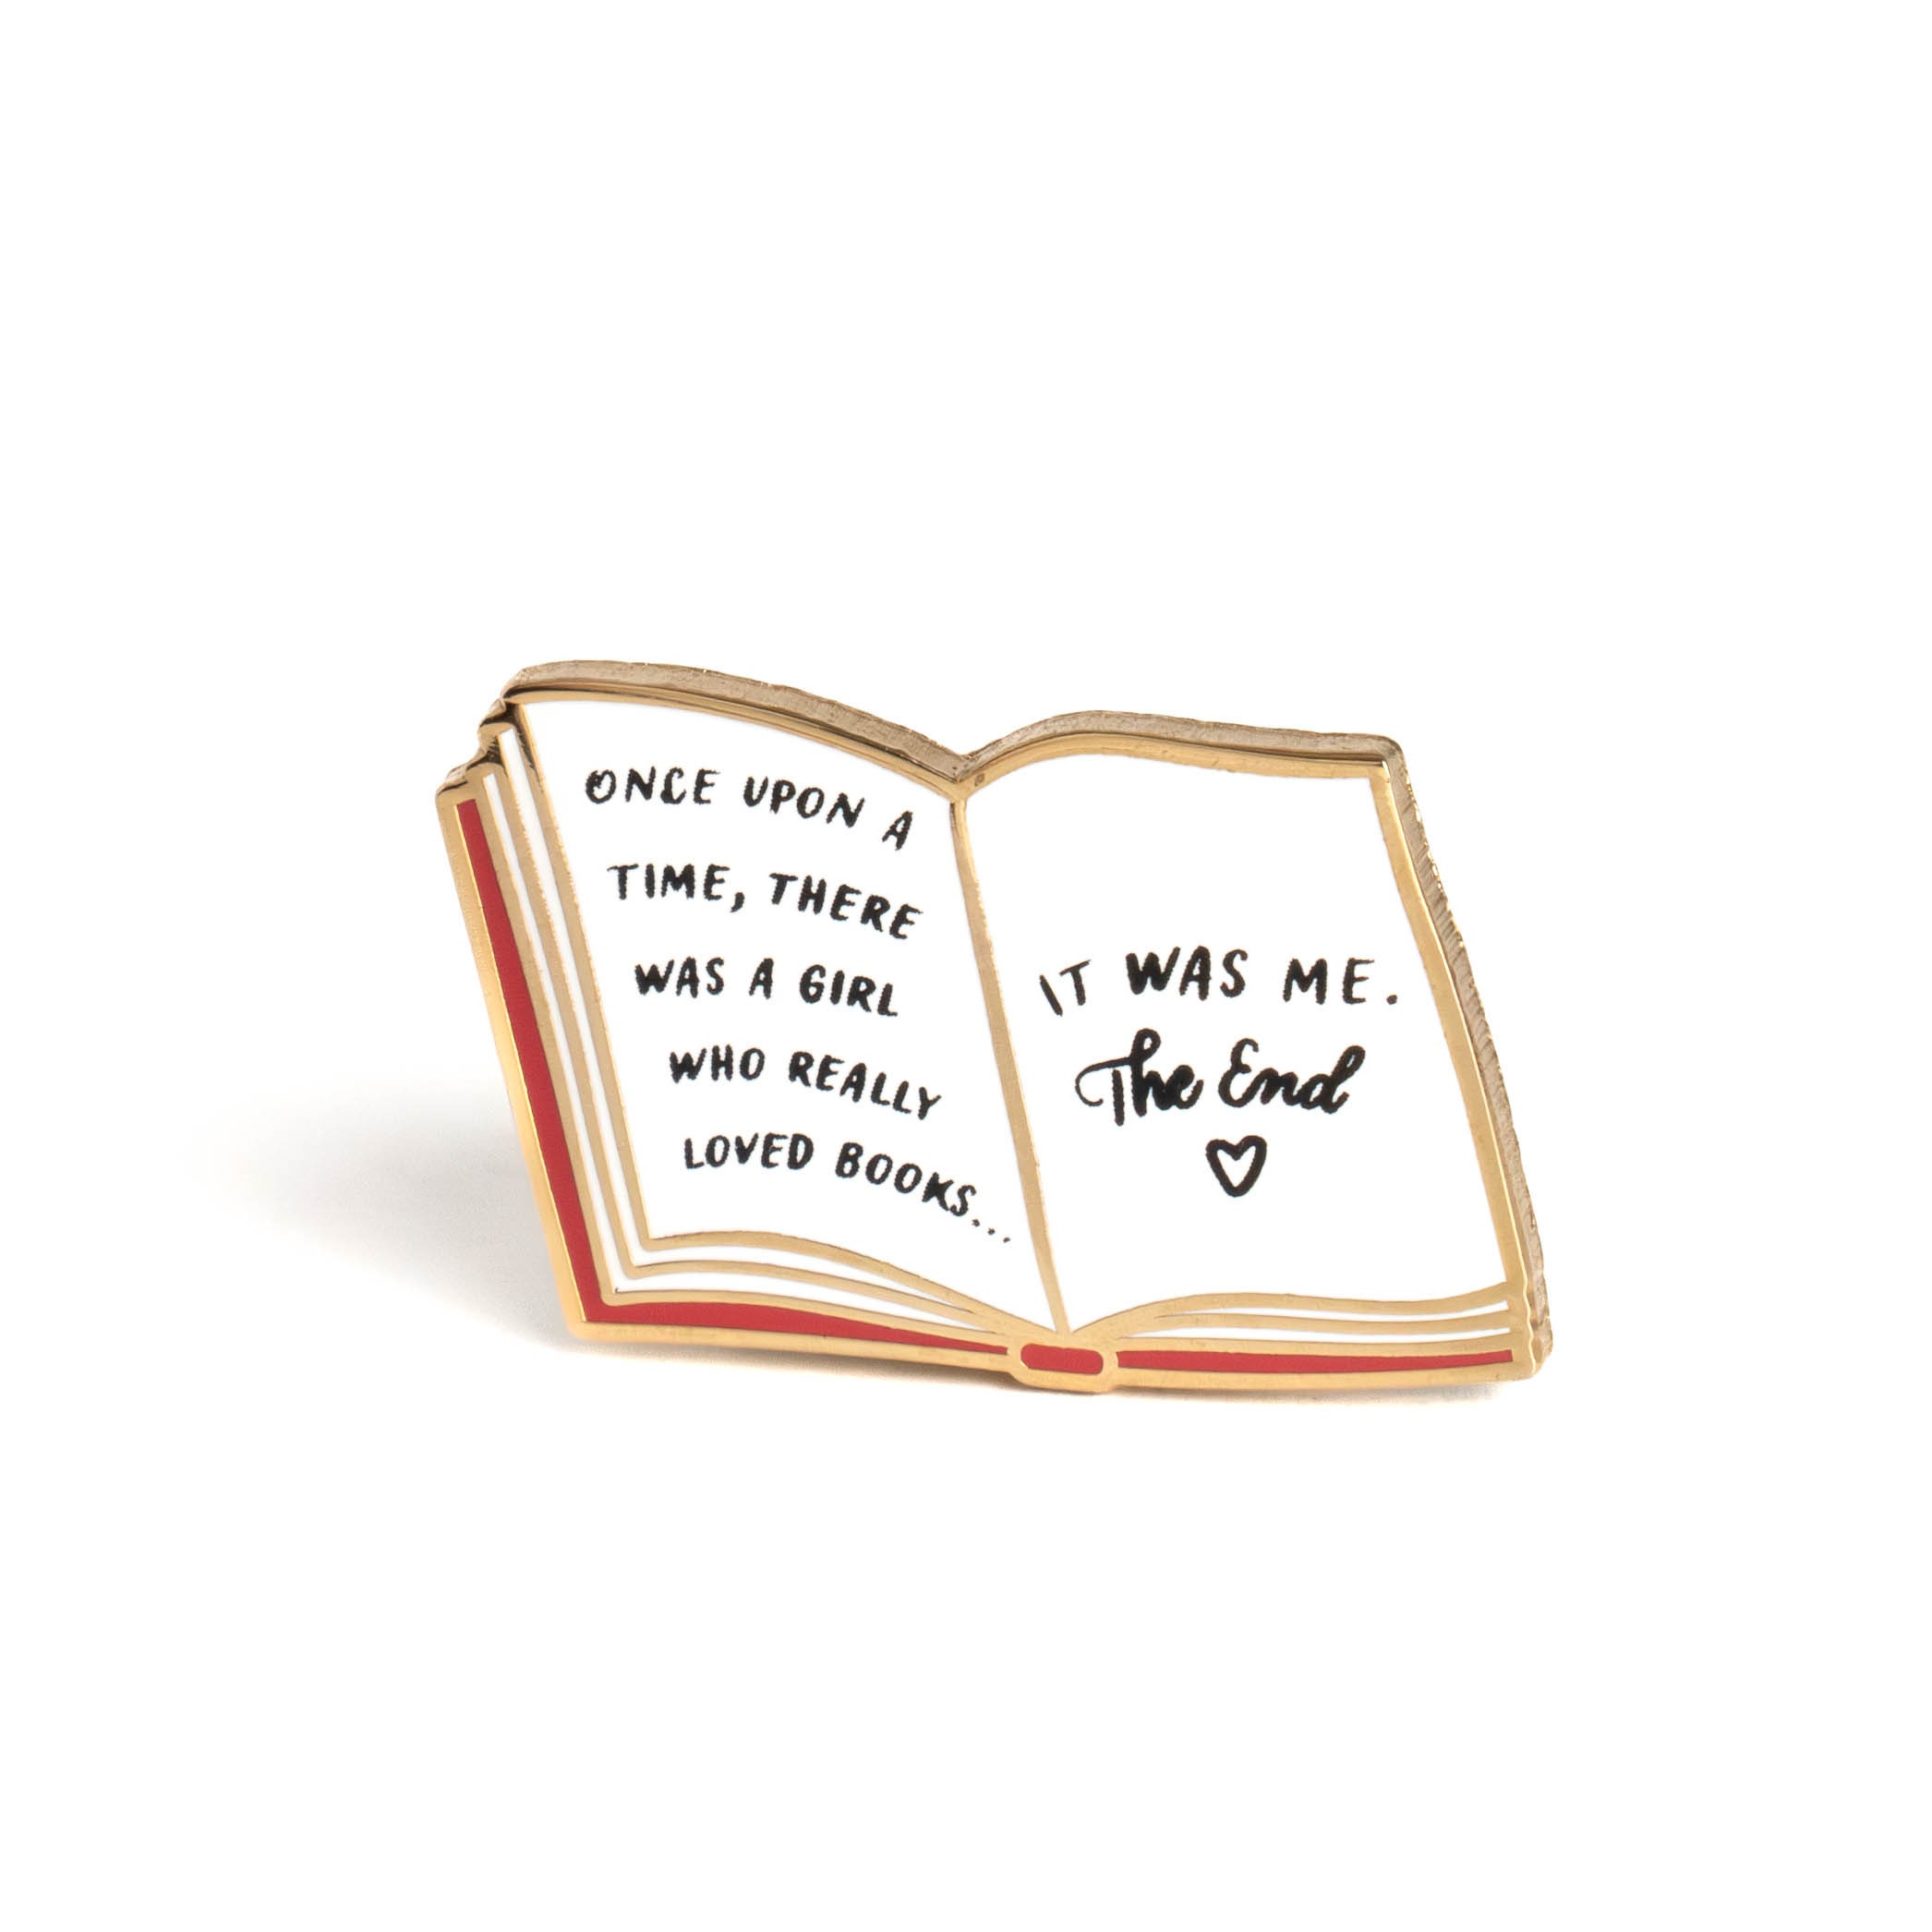 ONCE UPON A
TIME, THERE
WAS A GIRL
WHO REALLY
LOVED BOOKS...
IT WAS ME.
The End